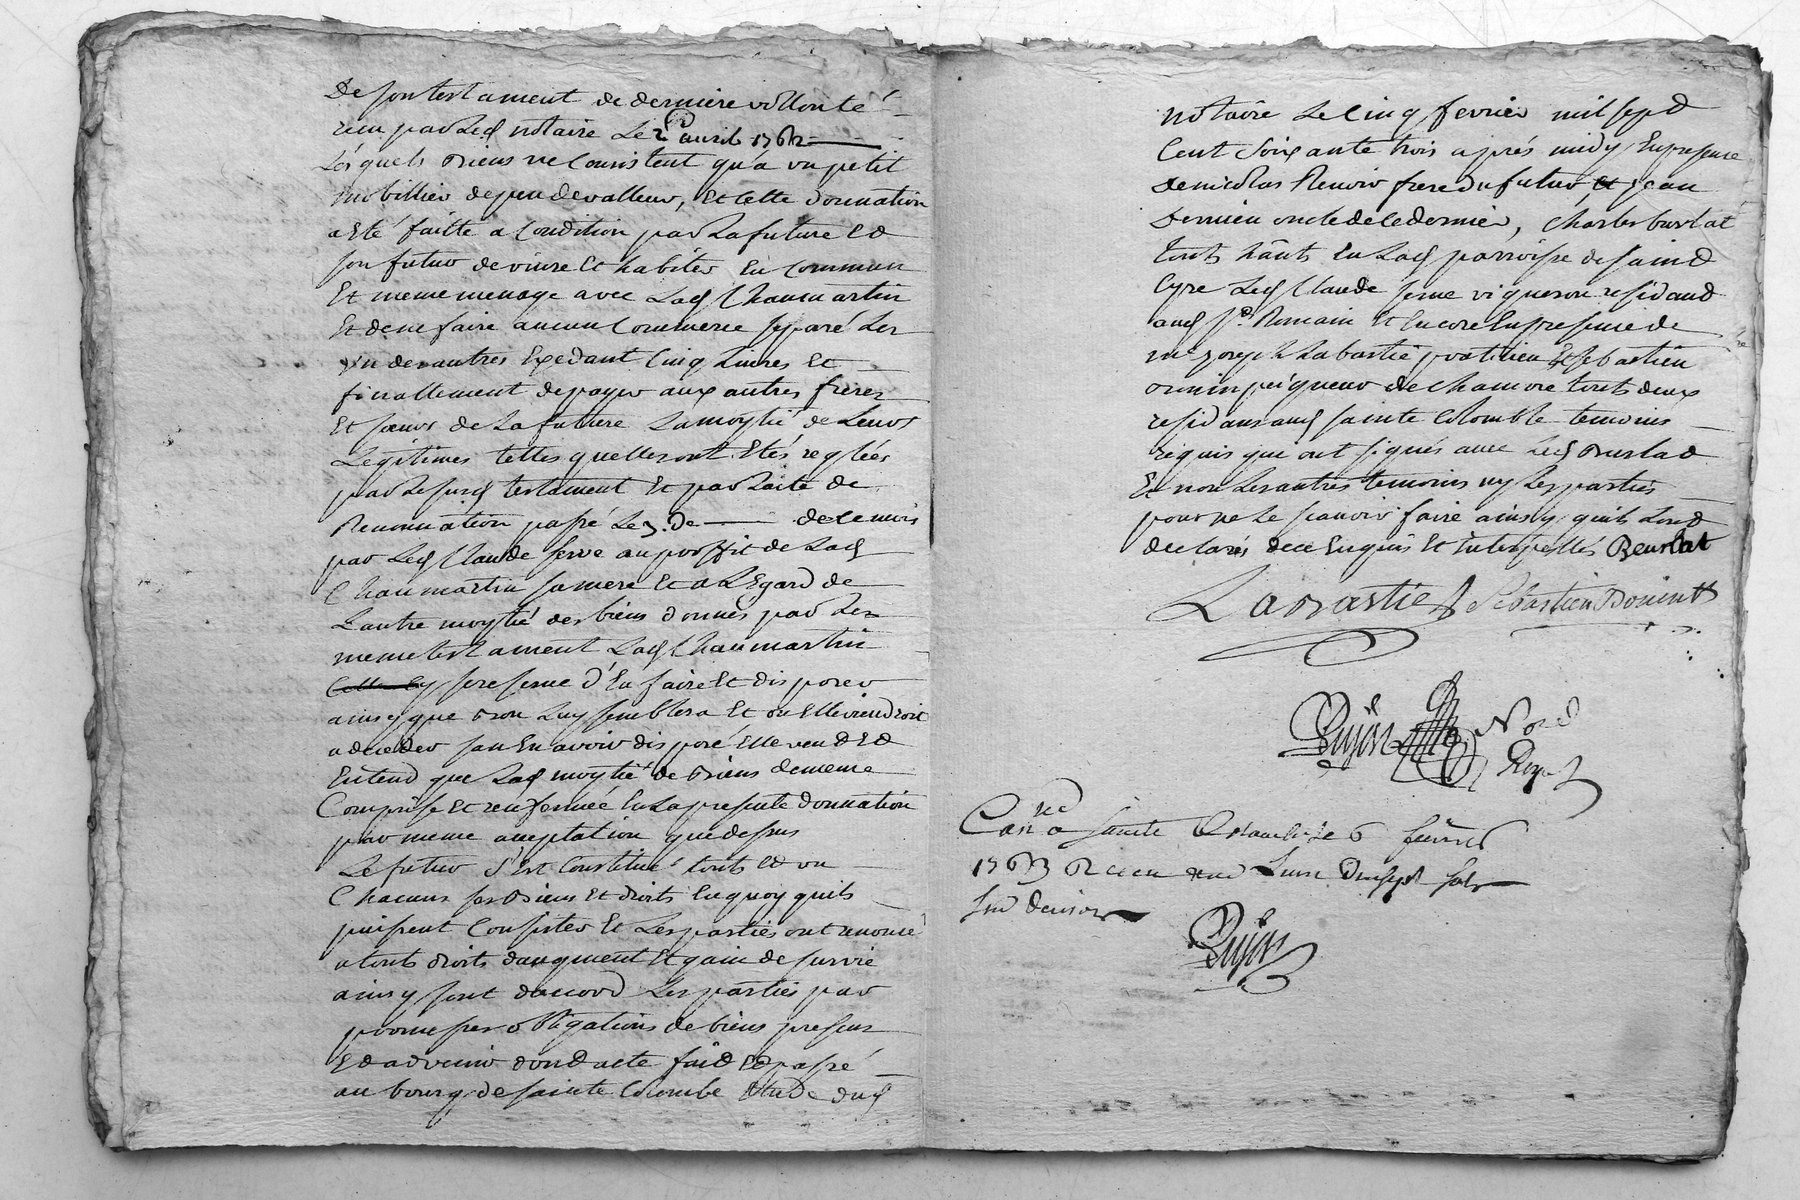 De son testament de derniere vollonté
recu par led notaire Le 2 avril 1762
Lesquels biens ne Consistent qu'a un petit
mobillier de peu de valleur, Et cette donnation
a Eté faitte a Condition par La future Ed
son futur de vivre Et habiter En Commun
Et meme menage avec Lad Chaumartin
Et de ne faire aucun Commerce separé Les
un des autres Exedant Cinq Livres Et
finallement de payer aux autres freres
Et sœurs de La future La moytié de Leurs
Legitimes telles quelles ont Etés reglées
par Le susd testament Et par Lacte de
Renonciation passé Le 3. De de ce mois
par Led Claude serve au proffit de Lad
Chaumartin sa mere Et a L'Egard de
Lautre moytié des biens donnés par Le
meme testament Lad Chaumartin
se reserve d'En faire Et disposer
ainsy que bon Luy semblera Et ou Elle viendroit
a deceder san En avoir disposé Elle veud Ed
Entend que Lad moytié de biens demeure
Comprise Et renfermée En La presente donnation
par meme aceptation que dessus
Le futur s'Est Constitué touts Ed un
Chacuns ses biens Et droits En quoy quils
puissent Consister Et Les parties ont renoncé
a touts droits daugment Et gain de survie
ainsy sont daccord Les parties par
promesses obligations de biens presens
Ed advenir dond acte faid Ed passé
au bourg de sainte Colombe Etude dud
notaire Le Cinq fevrier mil sepd
Cent soixante trois aprés midy En presence
de nicolas Renoir frere du futur, Et jean
dernieu oncle de ce dernier, Charles burlat
touts hants En Lad parroisse de saind
Cyre Led Claude serve vigneron residand
aud St Romain Et Encore En presence de
me joseph Labastie praticien Et sebastien
bonin peigneur de chanvre touts deux
residans aud sainte Colombe temoins
requis qui ont signés avec Led Burlad
Et non Les autres temoins ny Les parties
pour ne Le scavoir faire ainsy quils Lond
declarés de ce Enquis Et interpellés Beurlat
Labastie Sebastien Bonint
Dujon Nore
Roy
Con lé a sainte Colombe le 6 fevrier
1763 Recu une Livre Dixsept sols
six deniers
Dujon